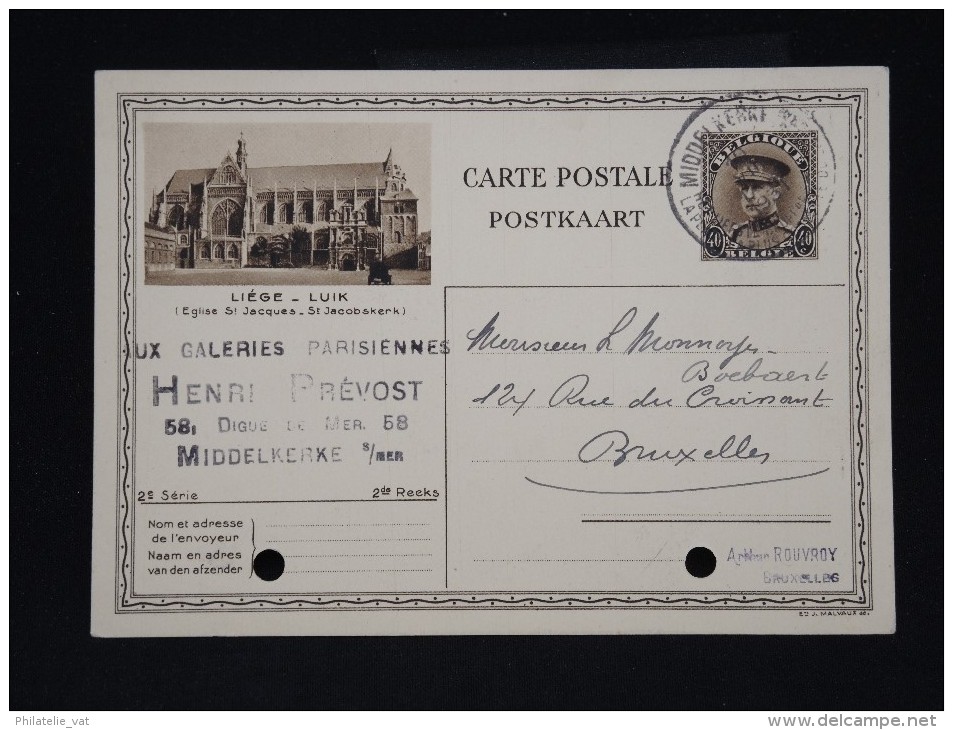 CARTE POSTALE
POSTKAART
MIDDELKERKE
BELGIQUE
40 40
BELGIE
LIÉGE - LUIK
(Eglise St Jacques - St Jacobskerk)
UX GALERIES PARISIENNES
HENRI PRÉVOST
58, DIGUE DE MER. 58
MIDDELKERKE S/MER
2e Série 2de Reeks
Nom et adresse
de l'envoyeur
Naam en adres
van den afzender
Monsieur L Monnoyer
Boebaert
124 Rue du Croissant
Bruxelles
Arthur ROUVROY
BRUXELLES
Ed J. MALVAUX
Philatelie_vat
www.delcampe.net